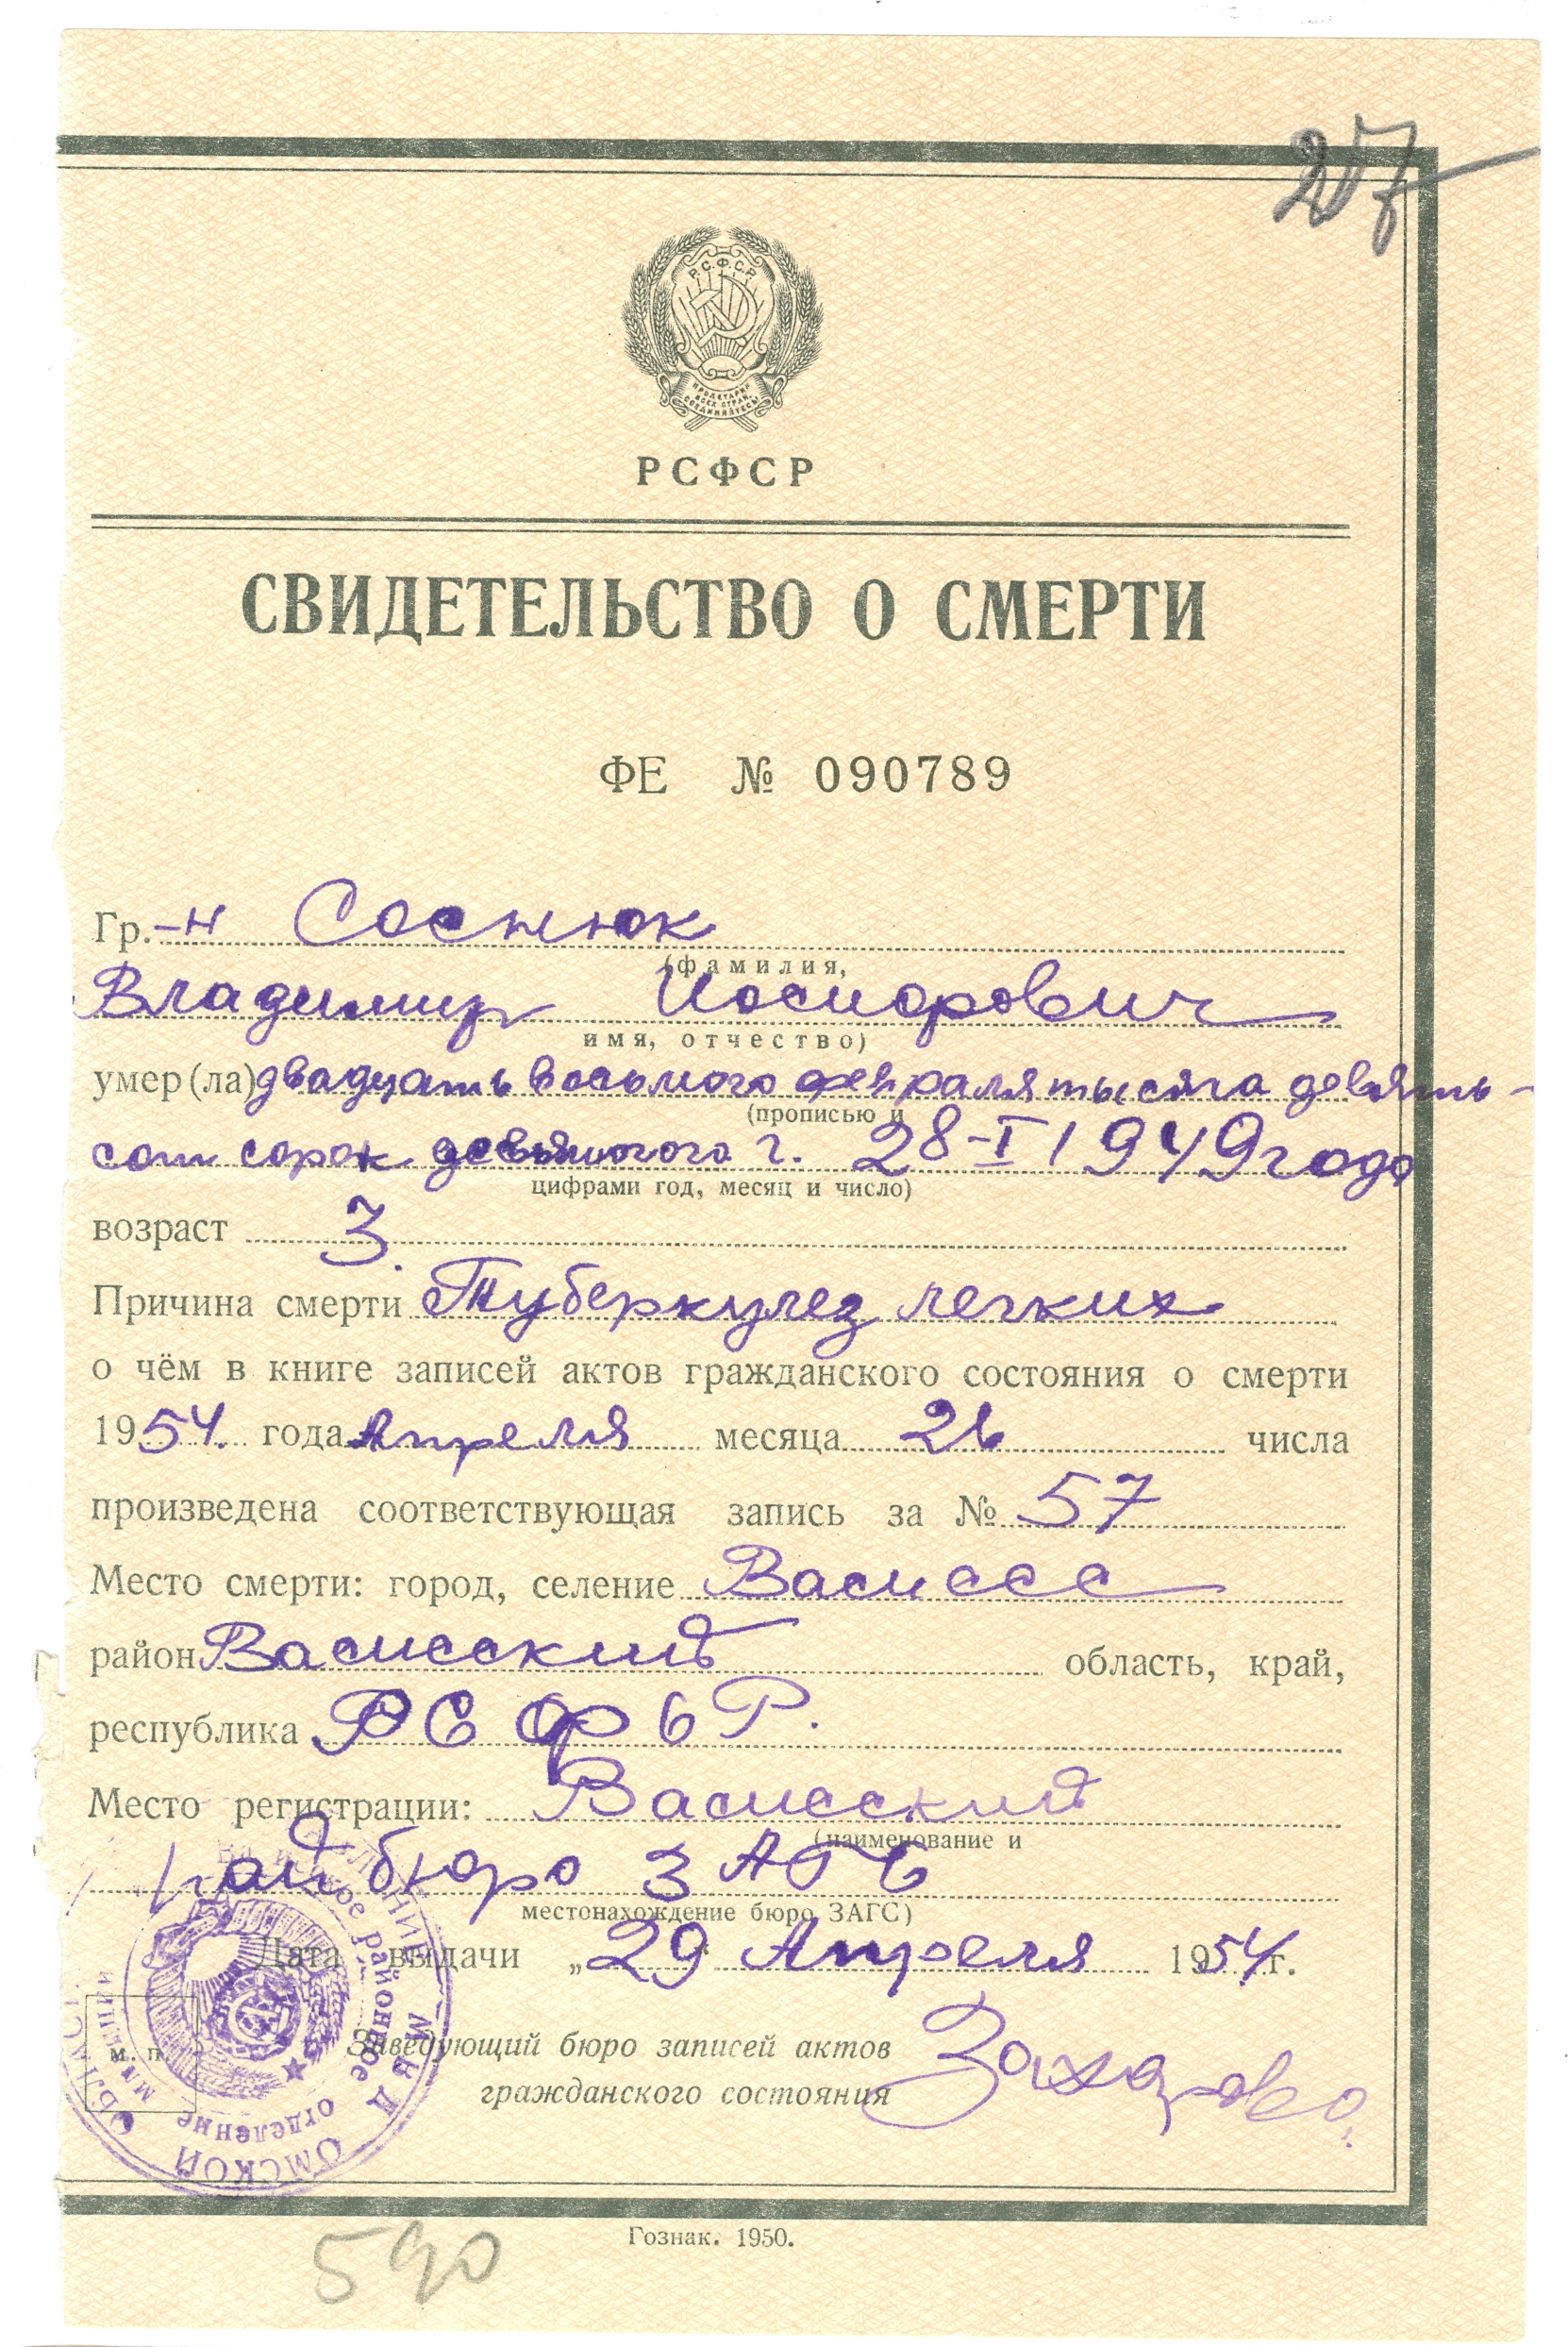 27
Р.С.Ф.С.Р.
ПРОЛЕТАРИИ
ВСЕХ СТРАН
СОЕДИНЯЙТЕСЬ!
РСФСР
СВИДЕТЕЛЬСТВО О СМЕРТИ
ФЕ № 090789
Гр.-н Соснюк
(фамилия,
Владимир Иосифорович
имя, отчество)
умер(ла) двадцать восьмого февраля тысяча девять-
(прописью и
сот сорок девятого г. 28-I 1949 года
цифрами год, месяц и число)
возраст 3.
Причина смерти Туберкулез легких
о чём в книге записей актов гражданского состояния о смерти
1954. года Апреля месяца 26 числа
произведена соответствующая запись за № 57
Место смерти: город, селение Васисс
район Васисский область, край,
республика РСФСР.
Место регистрации: Васисский
(наименование и
райбюро ЗАГС
местонахождение бюро ЗАГС)
Дата выдачи „29 Апреля 1954 г.
Заведующий бюро записей актов
гражданского состояния Захарова
м. п.
МВД ОМСКОЙ ОБЛАСТИ
районное отделение милиции
Гознак. 1950.
590